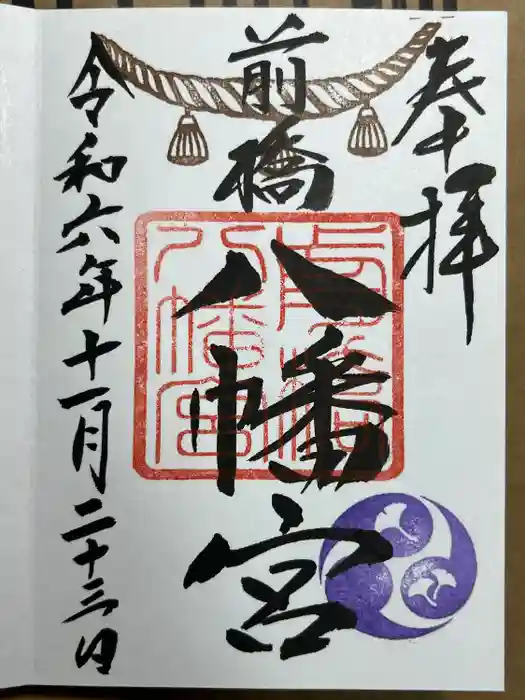 奉拝
前橋八幡宮
前橋八幡宮
令和六年十一月二十三日